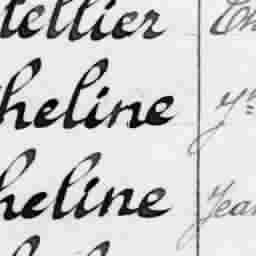 tellier
heline
heline Jean